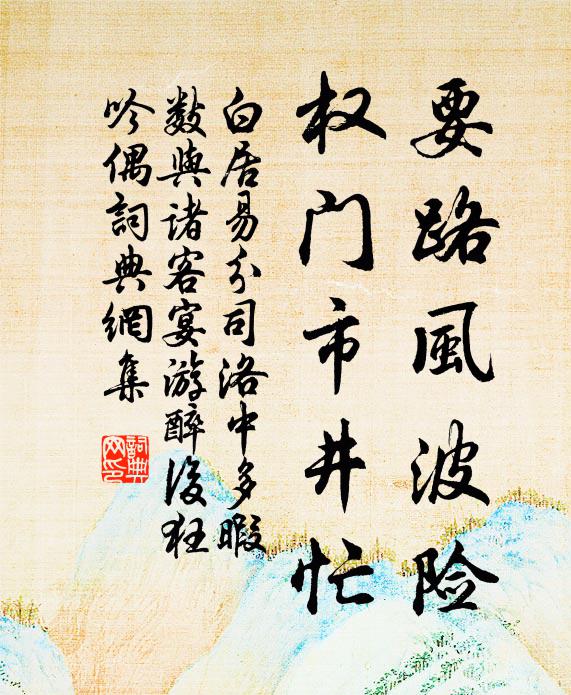 要路風波险
权门市井忙
白居易分司洛中多暇
数與诸客宴游醉後狂
吟偶詞典網集
詞典网印